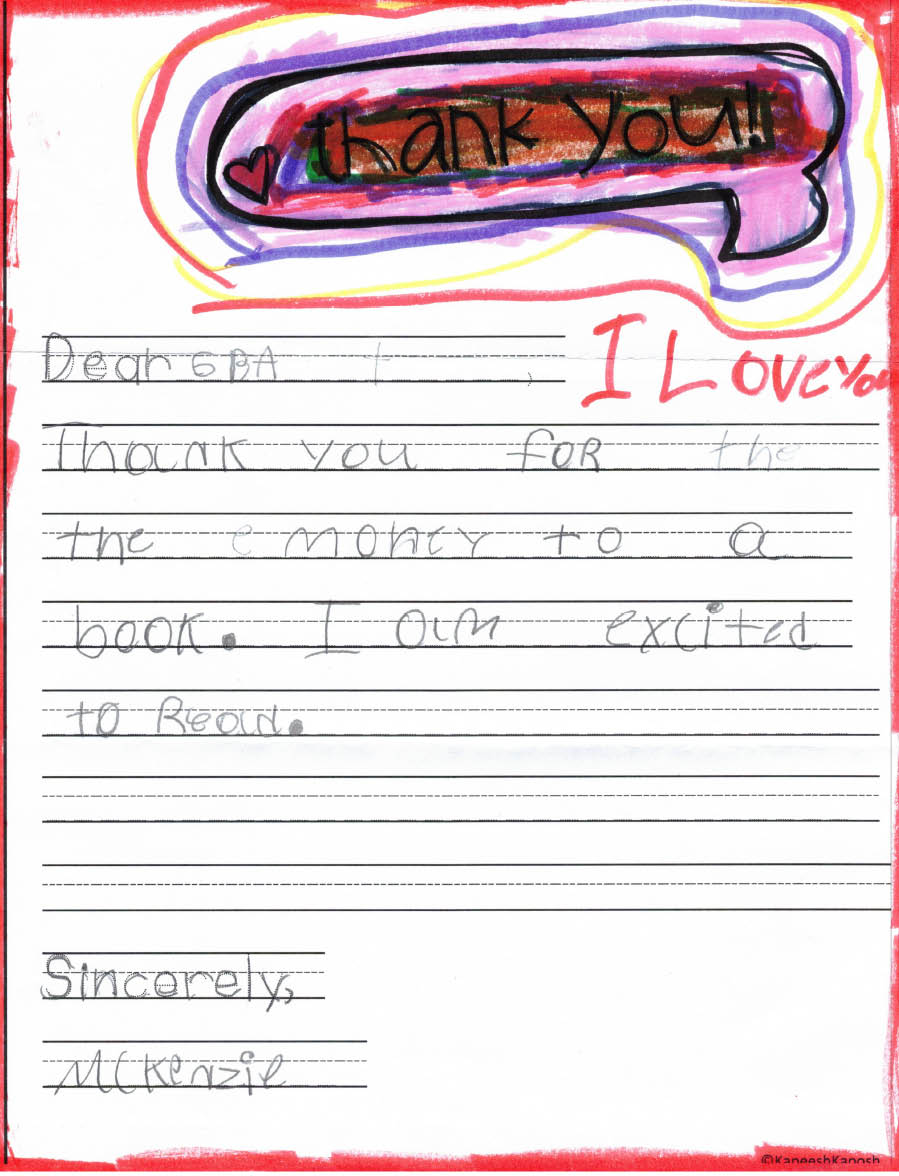 thank you!!
Dear GBA ,
I Love You
Thank you for the
the money to a
book. I am excited
to Read.
Sincerely,
McKenzie
©KaneeshKanosh